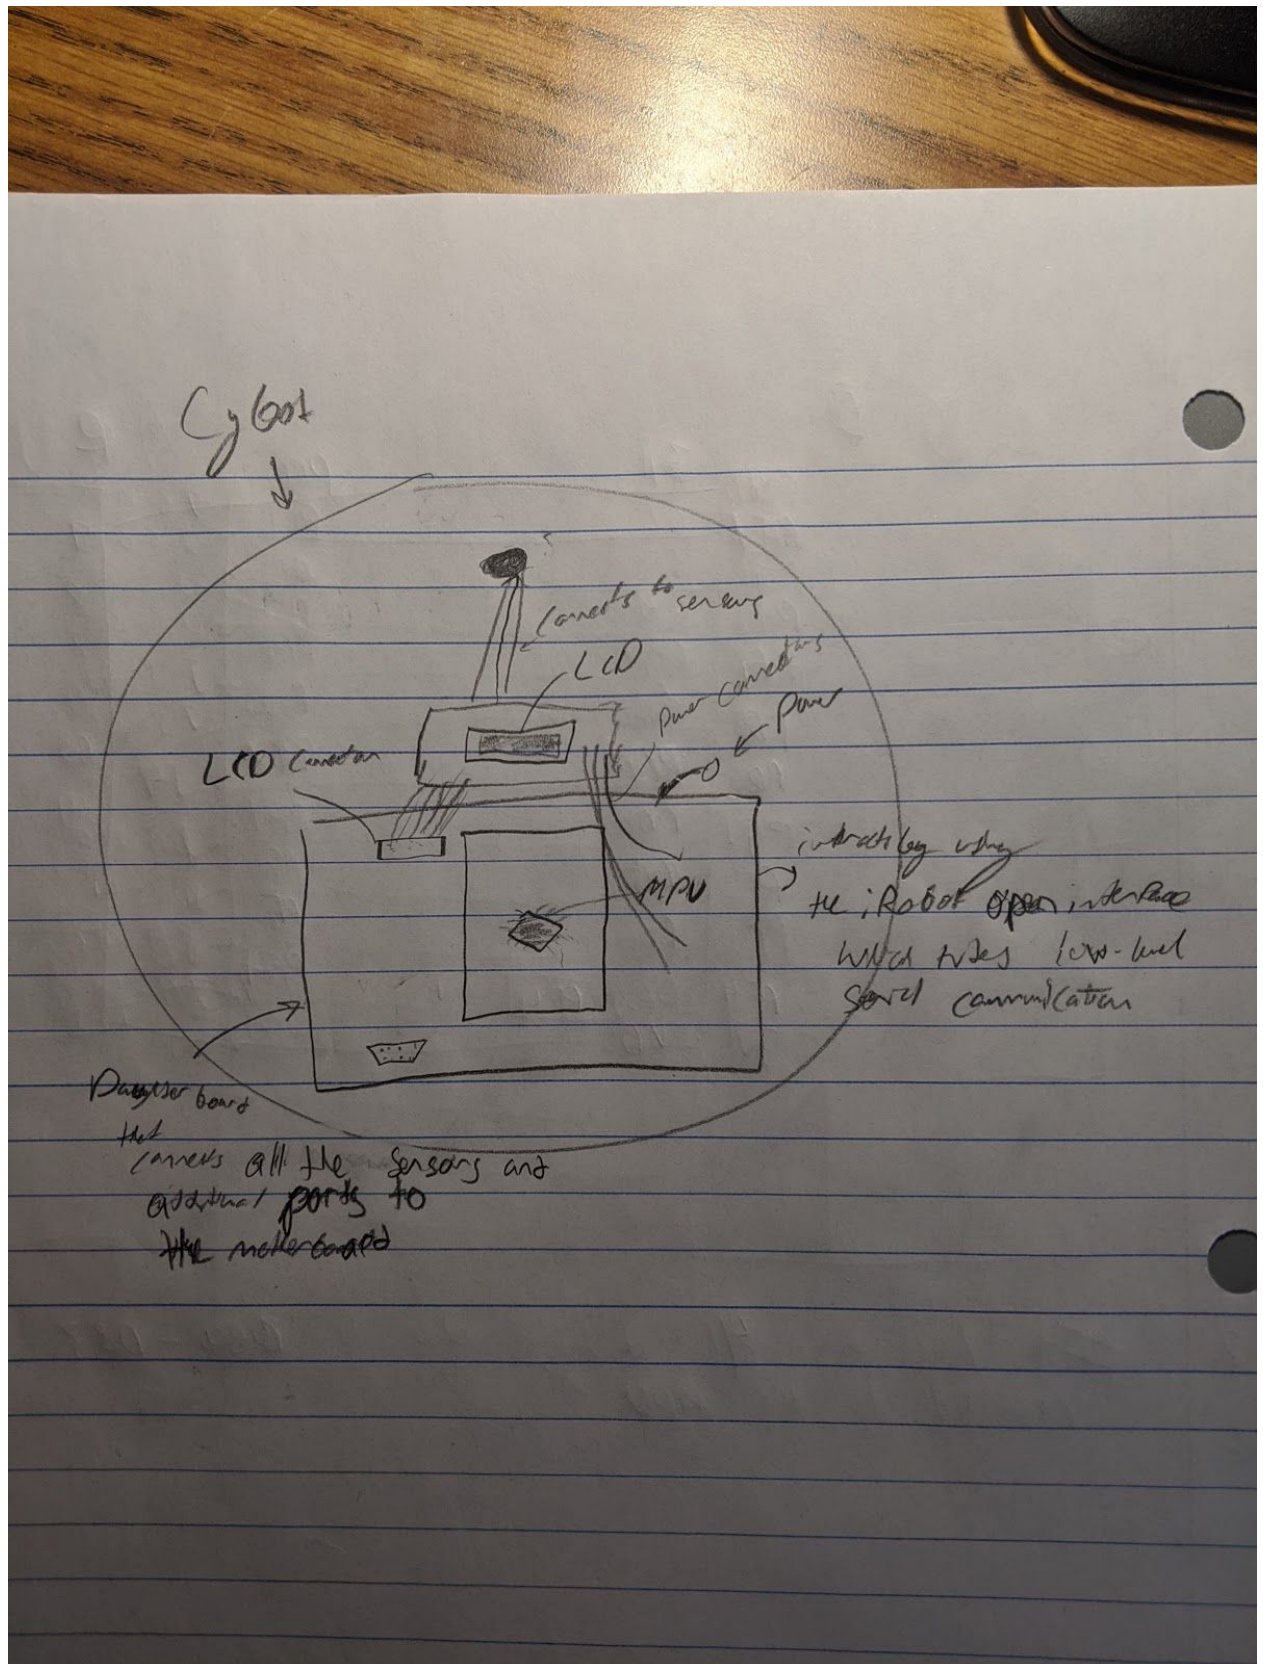 Cybot
connects to
sensors
LCD
power connections
power
LCD connection
MPU
interacts by using
the iRobot open interface
which uses low-level
serial communication
Daughter board
that
connects all the sensors and
additional ports to
the motherboard